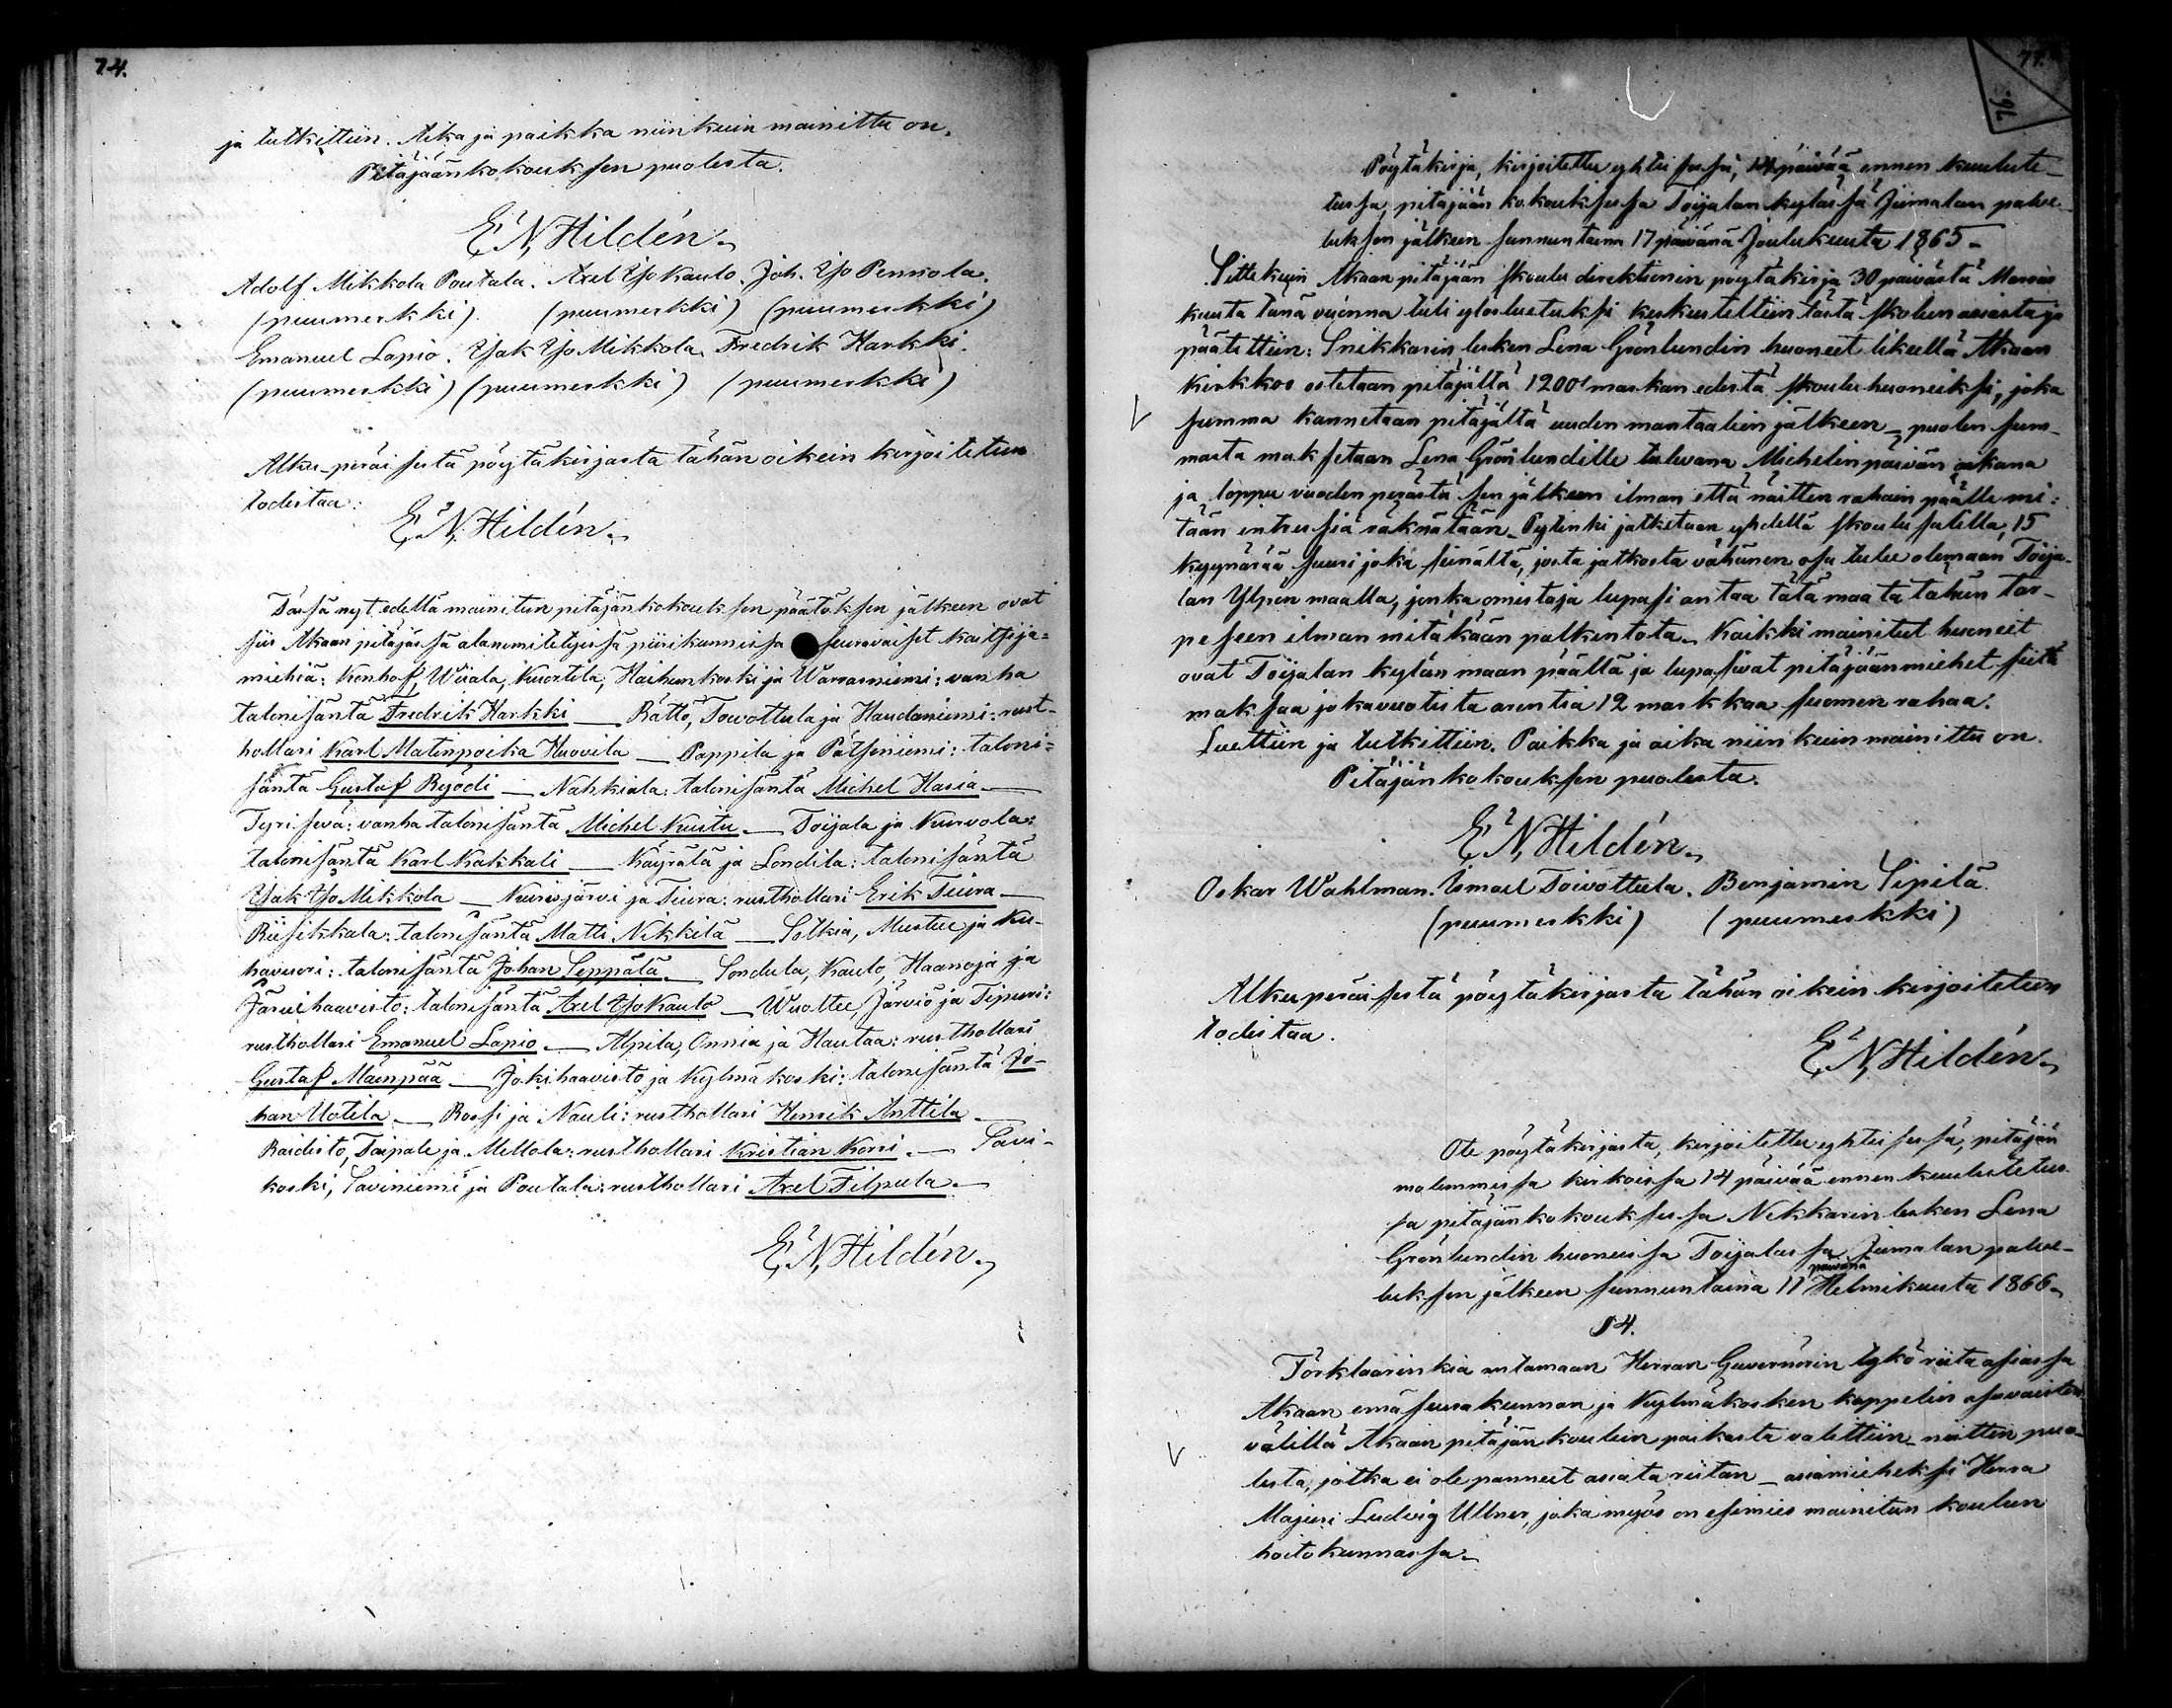 74.
ja tutkittiin. Aika ja paikka niinkuin mainittu on.
Pitäjäänkokouksen puolesta.
E. N. Hildén.
Adolf Mikkola Poutala. Axel Yso Kaulo. Joh. Yso Pennola.
(puumerkki) (puumerkki) (puumerkki)
Emanuel Lapio. Isak Yso Mikkola. Fredrik Harkki.
(puumerkki) (puumerkki) (puumerkki)
Alku-peräisestä pöytäkirjasta tähän oikein kirjoitetun
todistaa:
E. N. Hildén.
Täsä nyt edellä mainitun pitäjänkokouksen päätöksen jälkeen ovat
siis Akaan pitäjäsä alanimitetyisä piirikunnissa seuraavaiset kaitsija=
miehiä: Konhof, Wiiala, Kurtila, Haihunkoski ja Warrasniemi: vanha
talonisäntä Fredrik Harkki — Rättö, Towottula ja Haudaniemi: rust-
hollari Karl Matinpoika Huovila — Pappila ja Pätsiniemi: taloni=
säntä Gustaf Ryödi — Nahkiala: talonisäntä Michel Hasia —
Tyrisevä: vanha talonisäntä Michel Kustu — Toijala ja Kurvola:
talonisäntä Karl Kakkali — Käyrälä ja Sondila: talonisäntä
Isak Yso Mikkola — Kurisjärvi ja Tiura: rusthollari Erik Tiura —
Riisikkala: talonisäntä Matti Nikkilä — Sotkia, Mustue ja Ku-
havuori: talonisäntä Johan Seppälä — Sondula, Kaulo, Haanoja ja
Järvihaavisto: talonisäntä Axel Yso Kaulo — Wuoltee, Järviö ja Sipuri:
rusthollari Emanuel Lapio — Alpila, Onnia ja Hautaa: rusthollari
Gustaf Mäenpää — Jokihaavisto ja Kylmäkoski: talonisäntä Jo-
han Uotila — Rossi ja Nauli: rusthollari Henrik Anttila —
Raidisto, Taipale ja Mellola: rusthollari Kristian Korri — Savi-
koski, Saviniemi ja Poutala: rusthollari Axel Filpula —
E. N. Hildén.
76.
Pöytäkirja, kirjoitettu yhteisesä, 14 päivää ennen kuulute-
tussa, pitäjään kokouksessa Toijalan kyläsä Jumalan palve-
luksen jälkeen sunnuntaina 17 päivänä Joulukuuta 1865.
Sittekuin Akaan pitäjään skoulu direktionin pöytäkirja 30 päivästä Marras
kuuta tänä vuonna tuli ylösluetuksi keskusteltiin tästä skolun asiasta ja
päätettiin: Snikkarin lesken Lena Grönlundin huoneet likellä Akaan
kirkkoo ostetaan pitäjältä 1200 markan edestä skouluhuoneiksi, joka
summa kannetaan pitäjältä uuden mantaalien jälkeen — puolen sum-
masta maksetaan Lena Grönlundille tulevana Michelinpäivän aikana
ja loppu vuoden perästä sen jälkeen ilman että näitten rahain päälle mi:
tään intressiä räknätään. Pytinki jatketaan yhdellä skoulu salilla, 15
kyynärää suuri joka seinältä, josta jatkosta vähänen osa tulee olemaan Toija-
lan Ylpön maalla, jonka omistaja lupasi antaa tätä maata tähän tar-
peseen ilman mitäkään palkintota. Kaikki mainitut huoneit
ovat Toijalan kylän maan päällä ja lupasivat pitäjäänmiehet siitä
maksaa jokavuotista arentia 12 markkaa suomen rahaa.
Luettiin ja tutkittiin. Paikka ja aika niin kuin mainittu on.
Pitäjänkokouksen puolesta.
E. N. Hildén.
Oskar Wahlman. Ismael Toivottula. Benjamin Sipilä.
(puumerkki) (puumerkki)
Alkuperäisestä pöytäkirjasta tähän oikein kirjoitetun
todistaa.
E. N. Hildén.
Ote pöytäkirjasta, kirjoitettu yhteisesä, pitäjän
molemmissa kirkoissa 14 päivää ennen kuulutetus-
sa pitäjänkokouksessa Nikkarin lesken Lena
Grönlundin huoneissa Toijalassa Jumalan palve-
luksen jälkeen sunnuntaina 11 päivänä Helmikuuta 1866.
§ 4.
Förklaarinkia antamaan Herran Guvernörin tykö riita asiassa
Akaan emäseurakunnan ja Kylmäkosken kappelin asuvaisten
välillä Akaan pitäjän koulun paikasta valittiin — niitten puo-
lesta, jotka ei ole panneet asiata riitan — asiamieheksi Herra
Majuri Ludvig Ullner, joka myös on esimies mainitun koulun
hoitokunnassa.